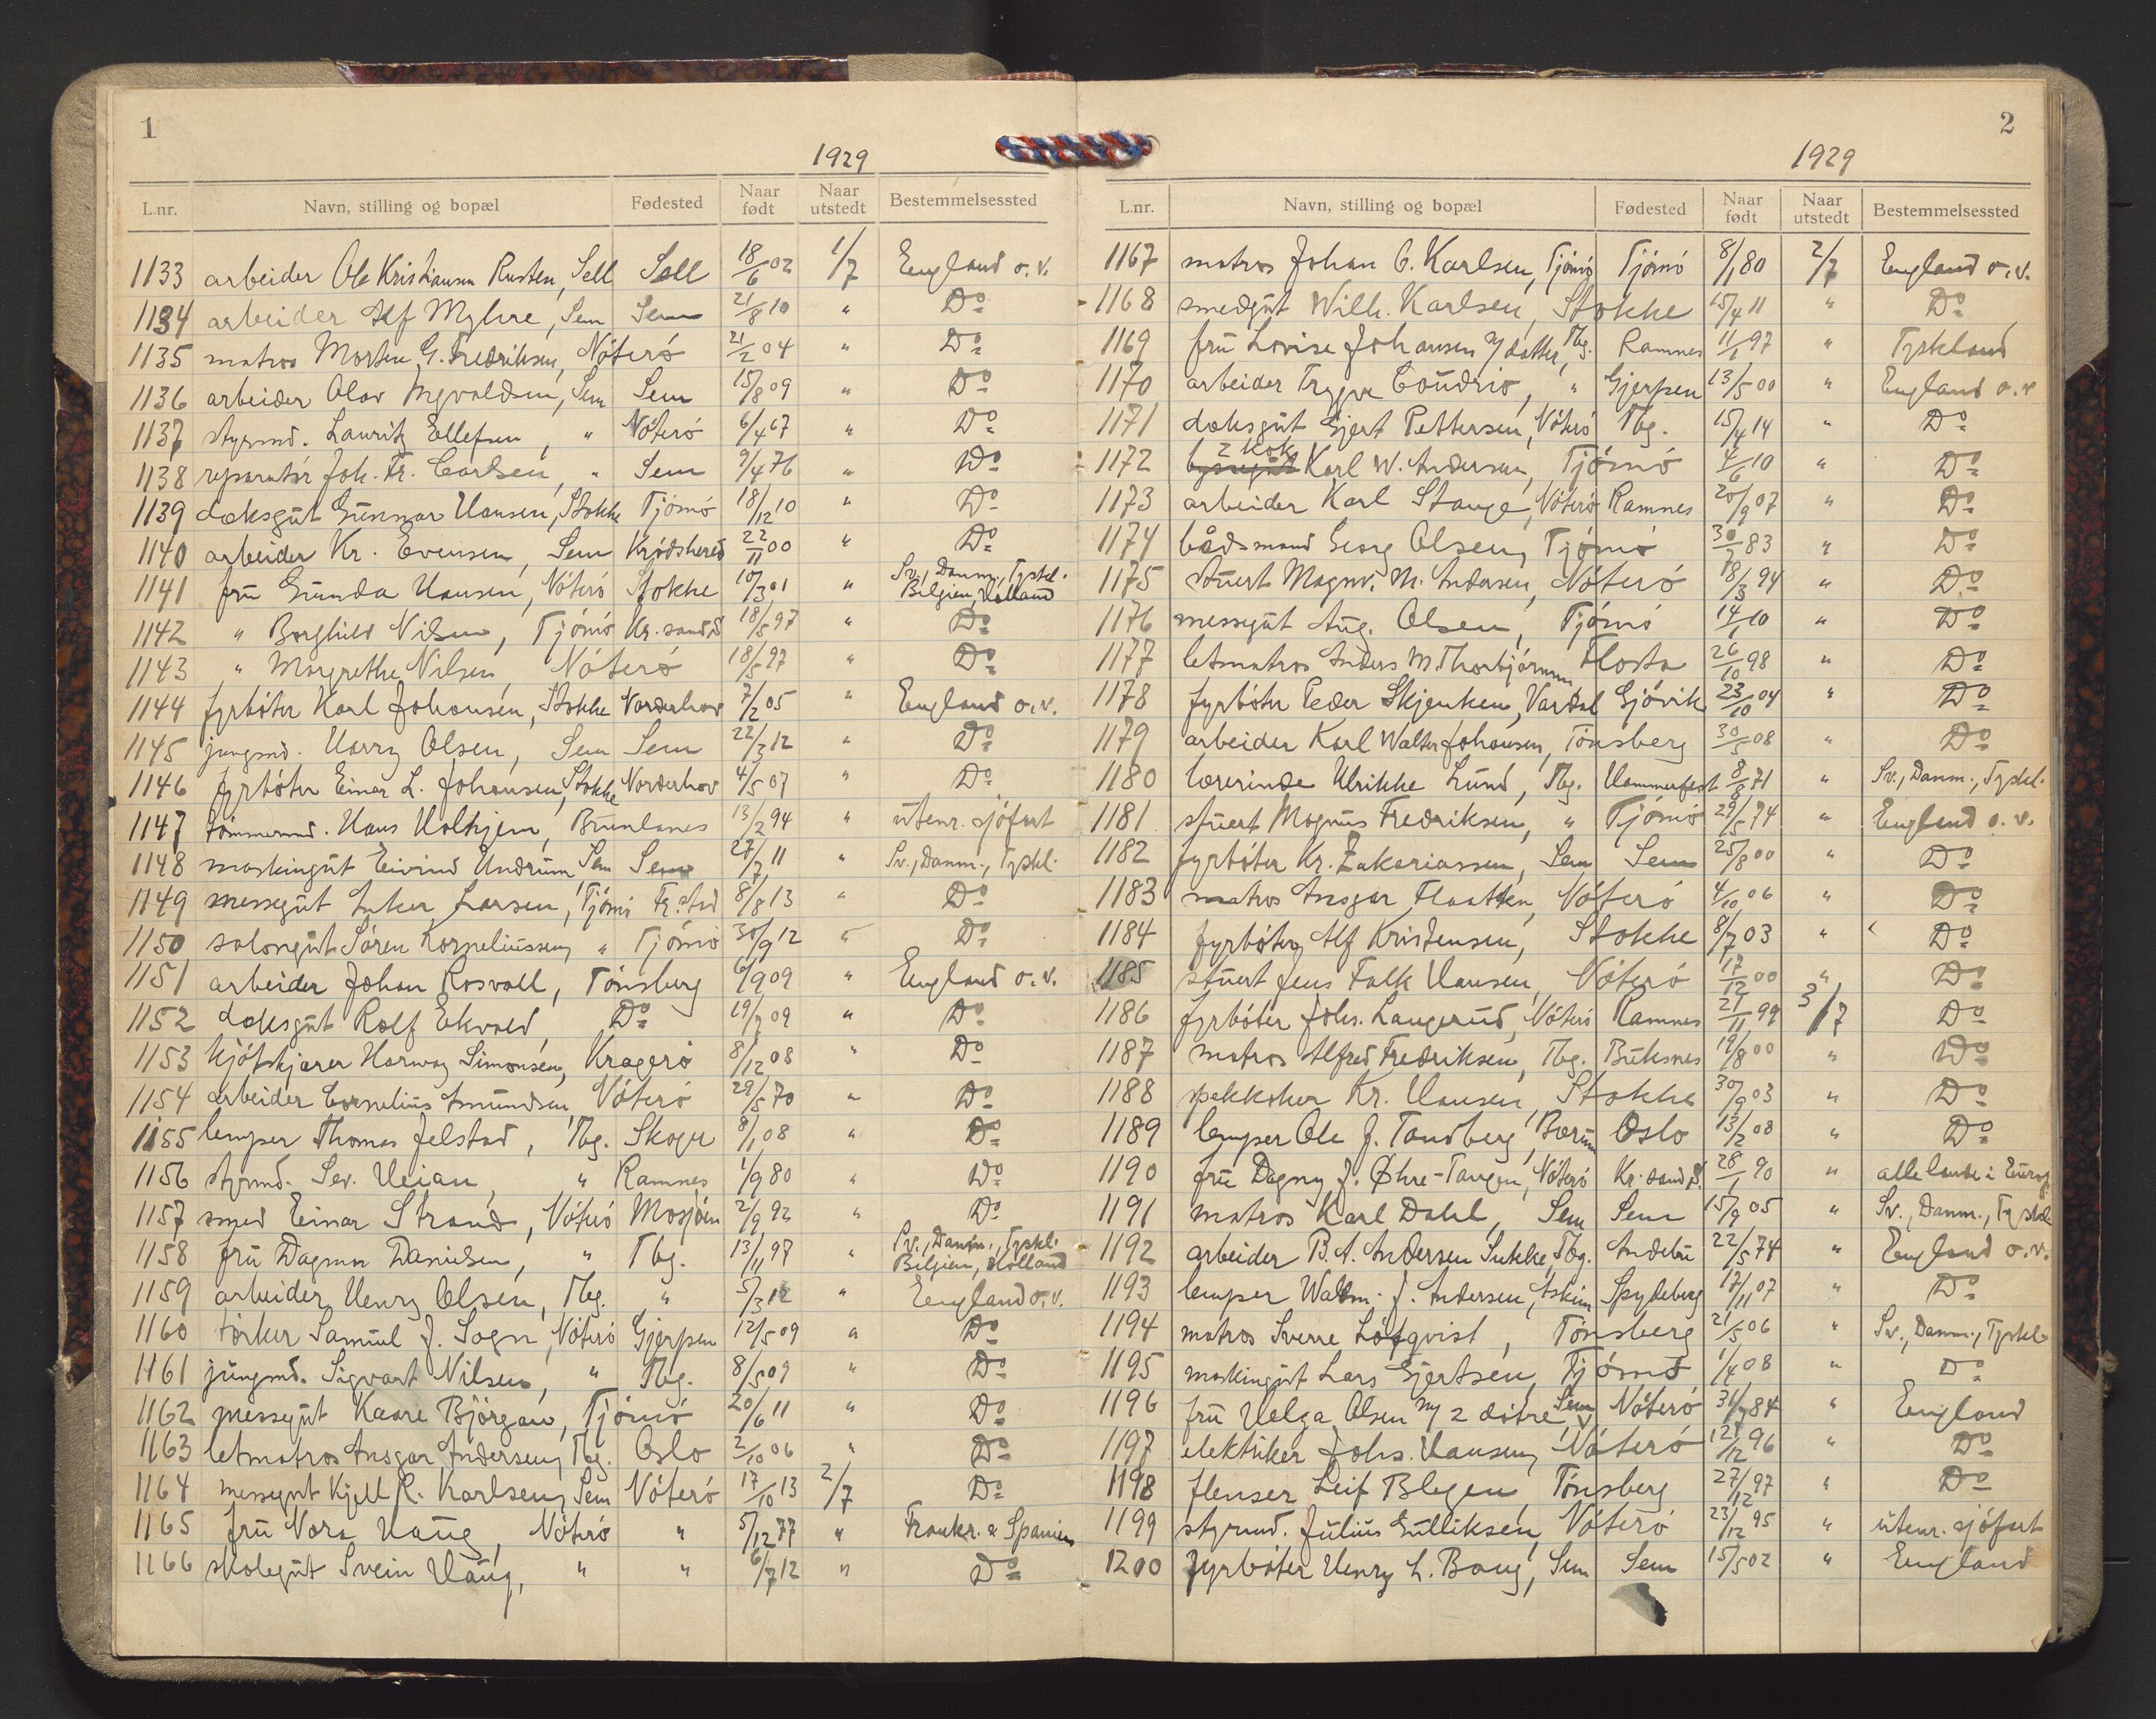 1
1929
L.nr. Navn, stilling og bopæl Fødested Naar født Naar utstedt Bestemmelsessted
1133 arbeider Ole Kristiansen Rusten, Sell Sell 18/6 02 1/7 England o.v.
1134 arbeider Alf Myhre, Sem Sem 21/8 10 " Do
1135 matros Morten G. Fredriksen, Nöterö 21/2 04 " Do
1136 arbeider Olav Ingvaldsen, Sem Sem 15/8 09 " Do
1137 styrmd. Lauritz Ellefsen, " Nöterö 6/4 67 " Do
1138 reparatör Joh. Fr. Carlsen, " Sem 9/4 76 " Do
1139 dæksgut Gunnar Hansen, Stokke Tjömö 18/12 10 " Do
1140 arbeider Kr. Evensen, Sem Krödshered 22/11 00 " Do
1141 fru Gunda Hansen, Nöterö Stokke 10/3 01 " Sv., Danm., Tyskl. Belgien, Holland
1142 " Borghild Nilsen, Tjömö Kr. sand S 18/5 97 " Do
1143 " Margrethe Nilsen, Nöterö 18/5 97 " Do
1144 fyrböter Karl Johansen, Stokke Norderhov 7/2 05 " England o.v.
1145 jungmd. Harry Olsen, Sem Sem 22/3 12 " Do
1146 fyrböter Einar L. Johansen, Stokke Norderhov 4/5 07 " Do
1147 tömmermd. Hans Holhjem, Brunlanes 13/2 94 " utenr. sjöfart
1148 maskingut Eivind Undrum, Sem Sem 27/7 11 " Sv., Danm., Tyskl.
1149 messegut Anker Larsen, Tjömö Fr.stad 8/8 13 " Do
1150 salongut Sören Korneliussen, " Tjömö 30/9 12 " Do
1151 arbeider Johan Rosvall, Tönsberg 6/9 09 " England o.v.
1152 dæksgut Rolf Ekvald, Do 19/7 09 " Do
1153 kjötskjærer Harway Simonsen, Kragerö 8/12 08 " Do
1154 arbeider Cornelius Amundsen, Nöterö 29/5 70 " Do
1155 lemper Thomas Jelstad, Tbg. Skoger 8/1 08 " Do
1156 styrmd. Sev. Veian, " Ramnes 1/9 80 " Do
1157 smed Einar Strand, Nöterö Mosjöen 2/9 92 " Do
1158 fru Dagmar Danielsen, " Tbg. 13/11 97 " Sv., Danm., Tyskl. Belgien, Holland
1159 arbeider Henry Olsen, Tbg. " 5/3 12 " England o.v.
1160 törker Samuel J. Sogn, Nöterö Gjerpen 12/5 09 " Do
1161 jungmd. Sigvart Nilsen, " Tbg. 8/5 09 " Do
1162 messegut Kaare Björgan, Tjömö 20/6 11 " Do
1163 letmatros Ansgar Andersen, Tbg. Oslo 2/10 06 " Do
1164 messegut Kjell R. Karlsen, Sem Nöterö 17/10 13 2/7 Do
1165 fru Nora Haug, Nöterö " 5/12 77 " Frankr. & Spanien
1166 skolegut Svein Haug, " " 6/7 12 " Do
2
1929
L.nr. Navn, stilling og bopæl Fødested Naar født Naar utstedt Bestemmelsessted
1167 matros Johan C. Karlsen, Tjömö Tjömö 8/1 80 2/7 England o.v.
1168 smedgut Wilh. Karlsen, Stokke 15/4 11 " Do
1169 fru Lovise Johansen m/ datter, Tbg. Ramnes 11/1 97 " Tyskland
1170 arbeider Trygve Coudrio, " Gjerpen 13/5 00 " England o.v
1171 dæksgut Gjert Pettersen, Nöterö Tbg. 15/4 14 " Do
1172 byssegut 2 kok Karl W. Andersen, Tjömö 4/6 10 " Do
1173 arbeider Karl Stange, Nöterö Ramnes 20/9 07 " Do
1174 bådsmand Georg Olsen, Tjömö 30/7 83 " Do
1175 stuert Magnv. M. Andersen, Nöterö 18/3 94 " Do
1176 messegut Aug. Olsen, Tjömö 14/1 10 " Do
1177 letmatros Anders M. Thorbjörnsen Flosta 26/10 98 " Do
1178 fyrböter Peder Skjenken, Vardal Gjövik 23/10 04 " Do
1179 arbeider Karl Walter Johansen, Tönsberg 30/5 08 " Do
1180 lærerinde Ulrikke Lund, Tbg. Hammerfest 8/8 71 " Sv., Danm., Tyskl.
1181 stuert Magnus Fredriksen, " Tjömö 29/5 74 " England o.v.
1182 fyrböter Kr. Zakariassen, Sem Sem 25/8 00 " Do
1183 matros Ansgar Flaatten, Nöterö 4/10 06 " Do
1184 fyrböter Alf Kristensen, Stokke 8/7 03 " Do
1185 stuert Jens Falk Hansen, Nöterö 17/12 00 " Do
1186 fyrböter Johs. Langerud, Nöterö Ramnes 21/11 99 3/7 Do
1187 matros Alfred Fredriksen, Tbg. Buksnes 19/8 00 " Do
1188 spekkoker Kr. Hansen, Stokke 30/9 03 " Do
1189 lemper Ole J. Tandberg, Bærum Oslo 13/2 08 " Do
1190 fru Dagny J. Øhre-Tangen, Nöterö Kr. sand S. 28/1 90 " alle lande i Europ
1191 matros Karl Dahl, Sem Sem 15/9 05 " Sv., Danm., Tyskl.
1192 arbeider B. A. Andersen Sukke, Tbg. Andebu 22/5 74 " England o.v.
1193 lemper Waldm. J. Andersen, Askim Spydeberg 17/11 07 " Do
1194 matros Sverre Löfqvist, Tönsberg 21/5 06 " Sv., Danm., Tyskl.
1195 maskingut Lars Gjertsen, Tjömö 1/4 08 " Do
1196 fru Helga Olsen m/ 2 döttre, Sem Nöterö 31/7 84 " England
1197 elektriker Johs. Hansen, Nöterö 12/12 96 " Do
1198 flenser Leif Blegen, Tönsberg 27/12 97 " Do
1199 styrmd. Julius Gulliksen, Nöterö 23/12 95 " utenr. sjöfart
1200 fyrböter Henry L. Baug, Sem Sem 15/5 02 " England